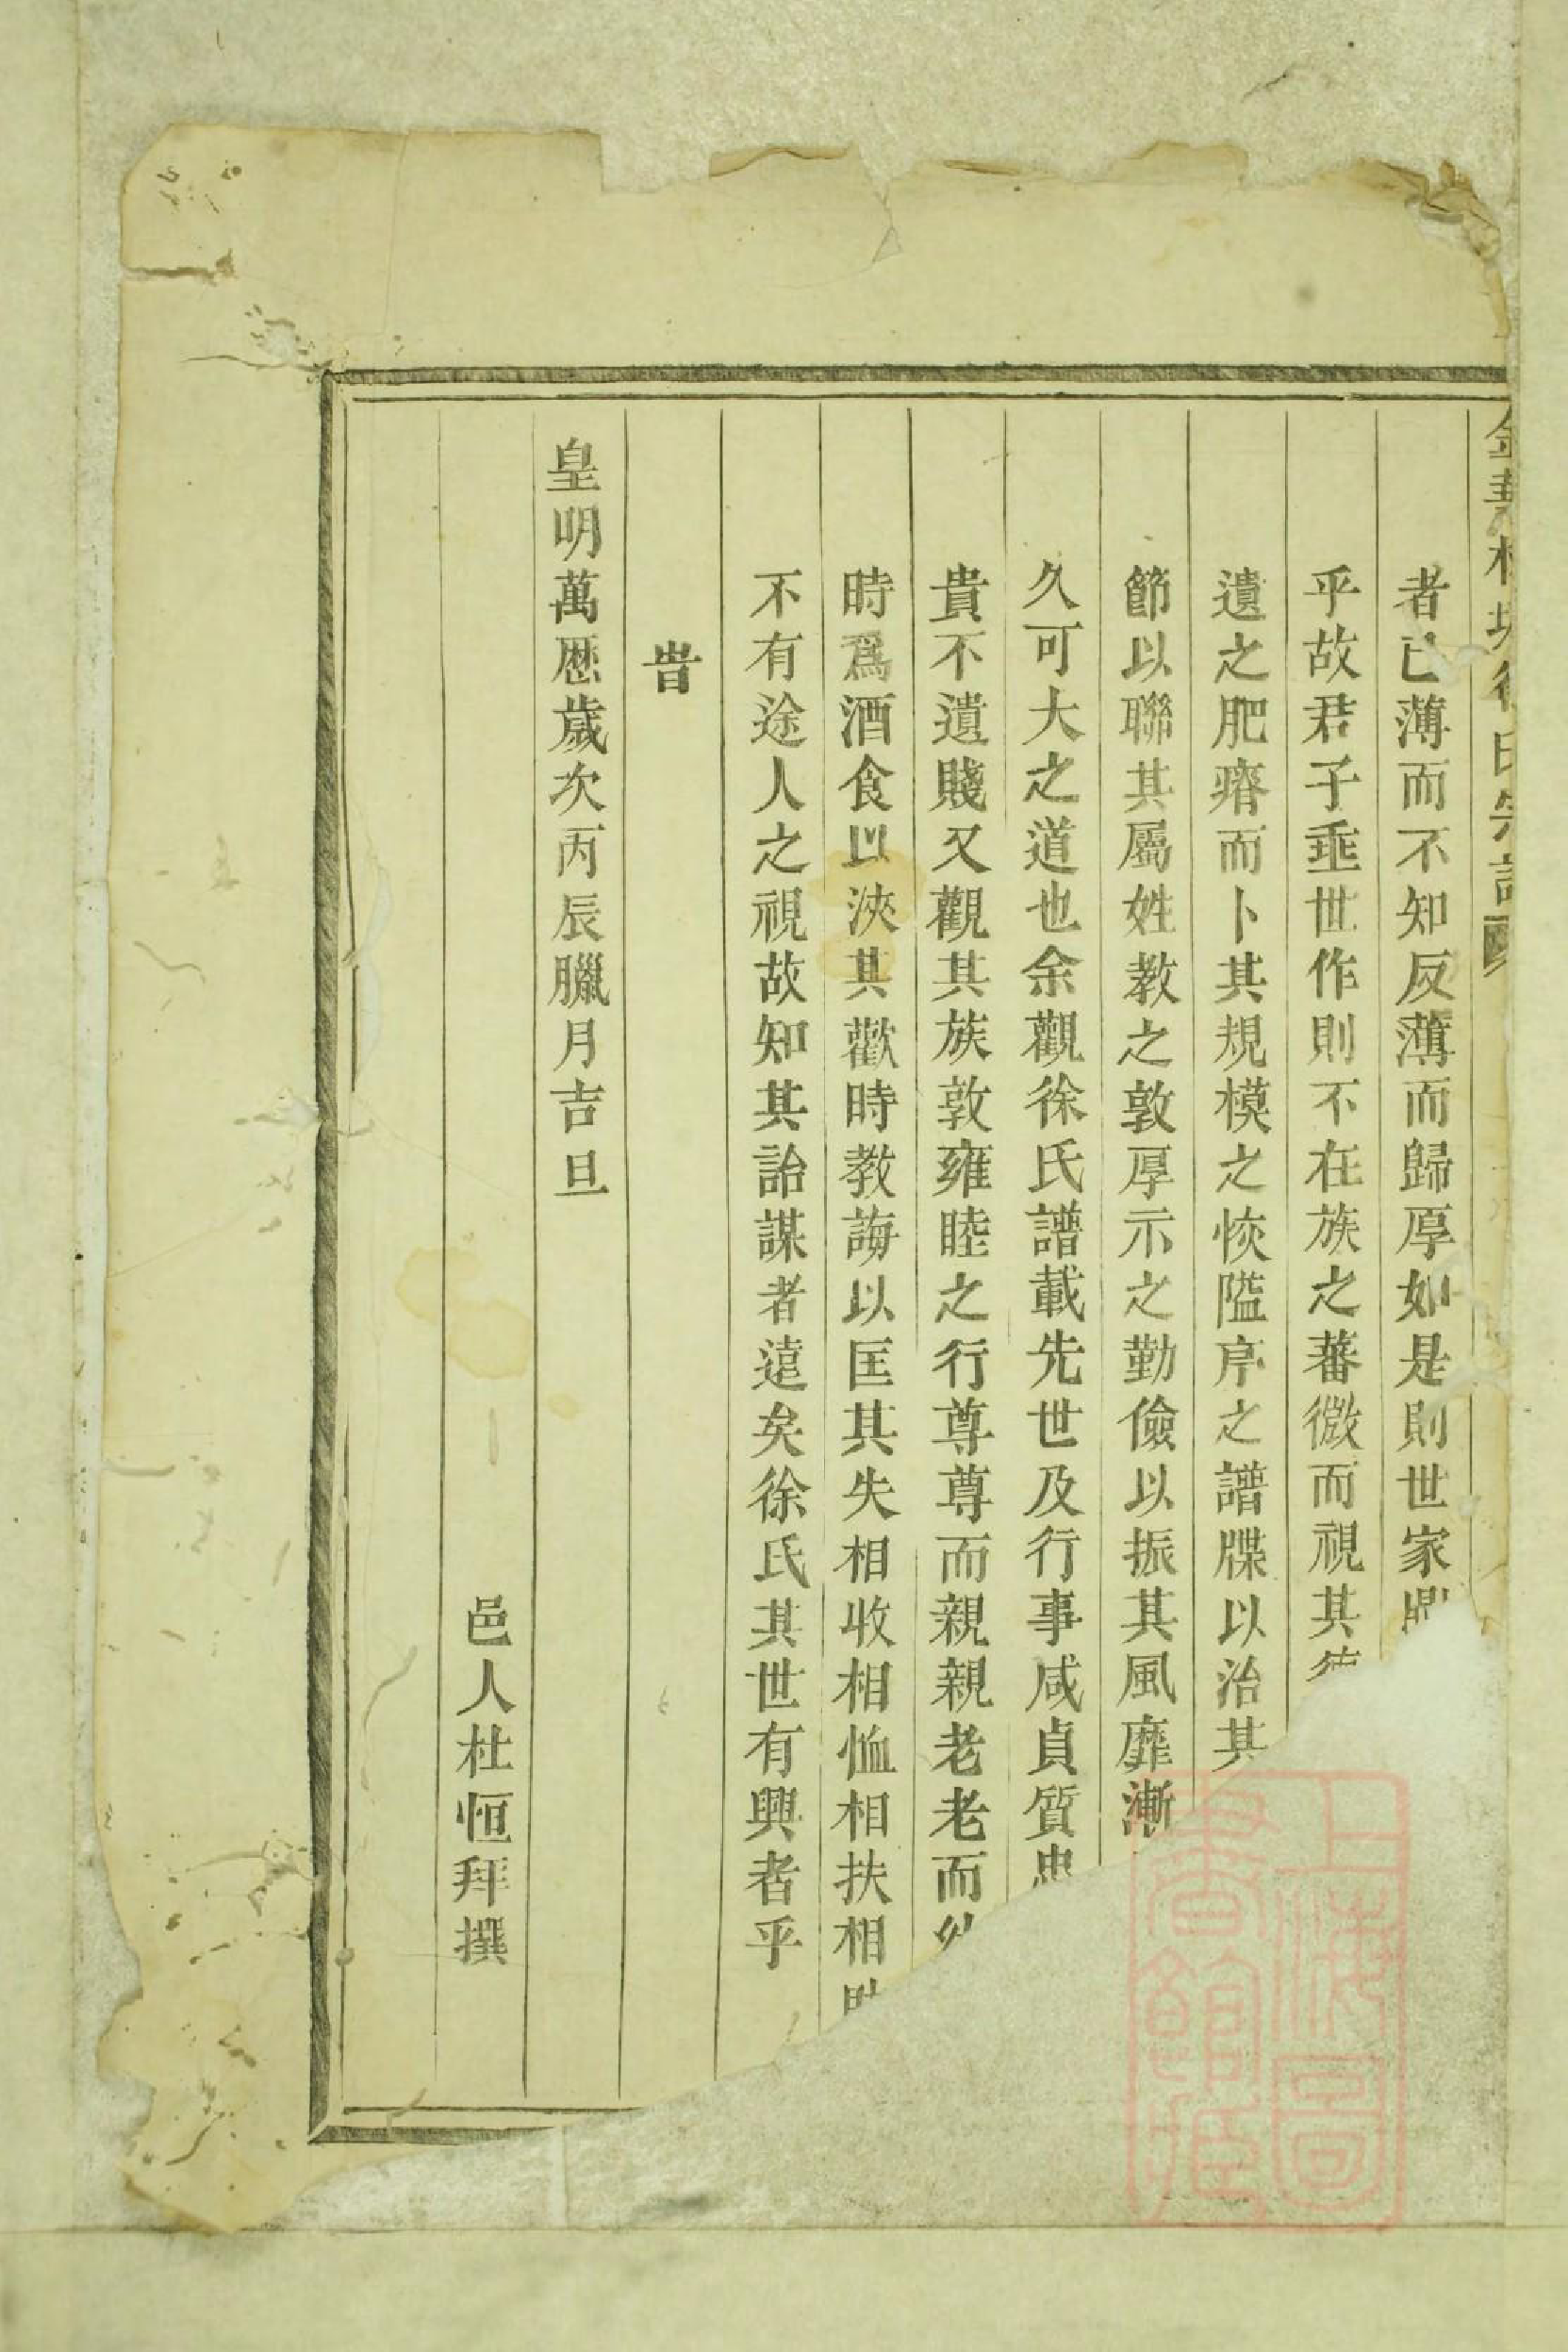 者已薄而不知反薄而歸厚如是則世家
乎故君子垂世作則不在族之蕃微而視其
遺之肥瘠而卜其規模之恢隘序之譜牒以治其
節以聯其屬姓教之敦厚示之勤儉以振其風靡漸
久可大之道也余觀徐氏譜載先世及行事咸貞質忠
貴不遺賤又觀其族敦雍睦之行尊尊而親親老老而幼
時爲酒食以浹其歡時教誨以匡其失相收相恤相扶相助
不有途人之視故知其詒謀者遠矣徐氏其世有興者乎
旹
皇明萬歷歲次丙辰臘月吉旦
邑人杜恒拜撰
上海圖書館藏